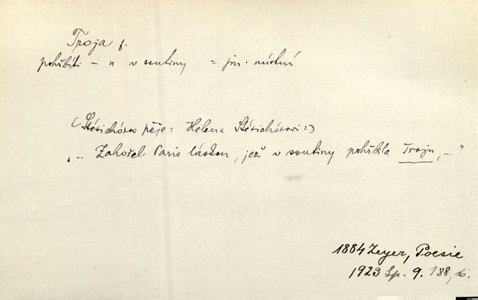 Troja f.
pohřbíti – u v ssutiny = jm. místní
(Stésichóros pěje: Helena Stésichórovi:)
„.. Zahořel Paris láskou, jež v ssutiny pohřbla Troju, ..."
1884 Zeyer, Poesie
1923 Sp. 9. 188,